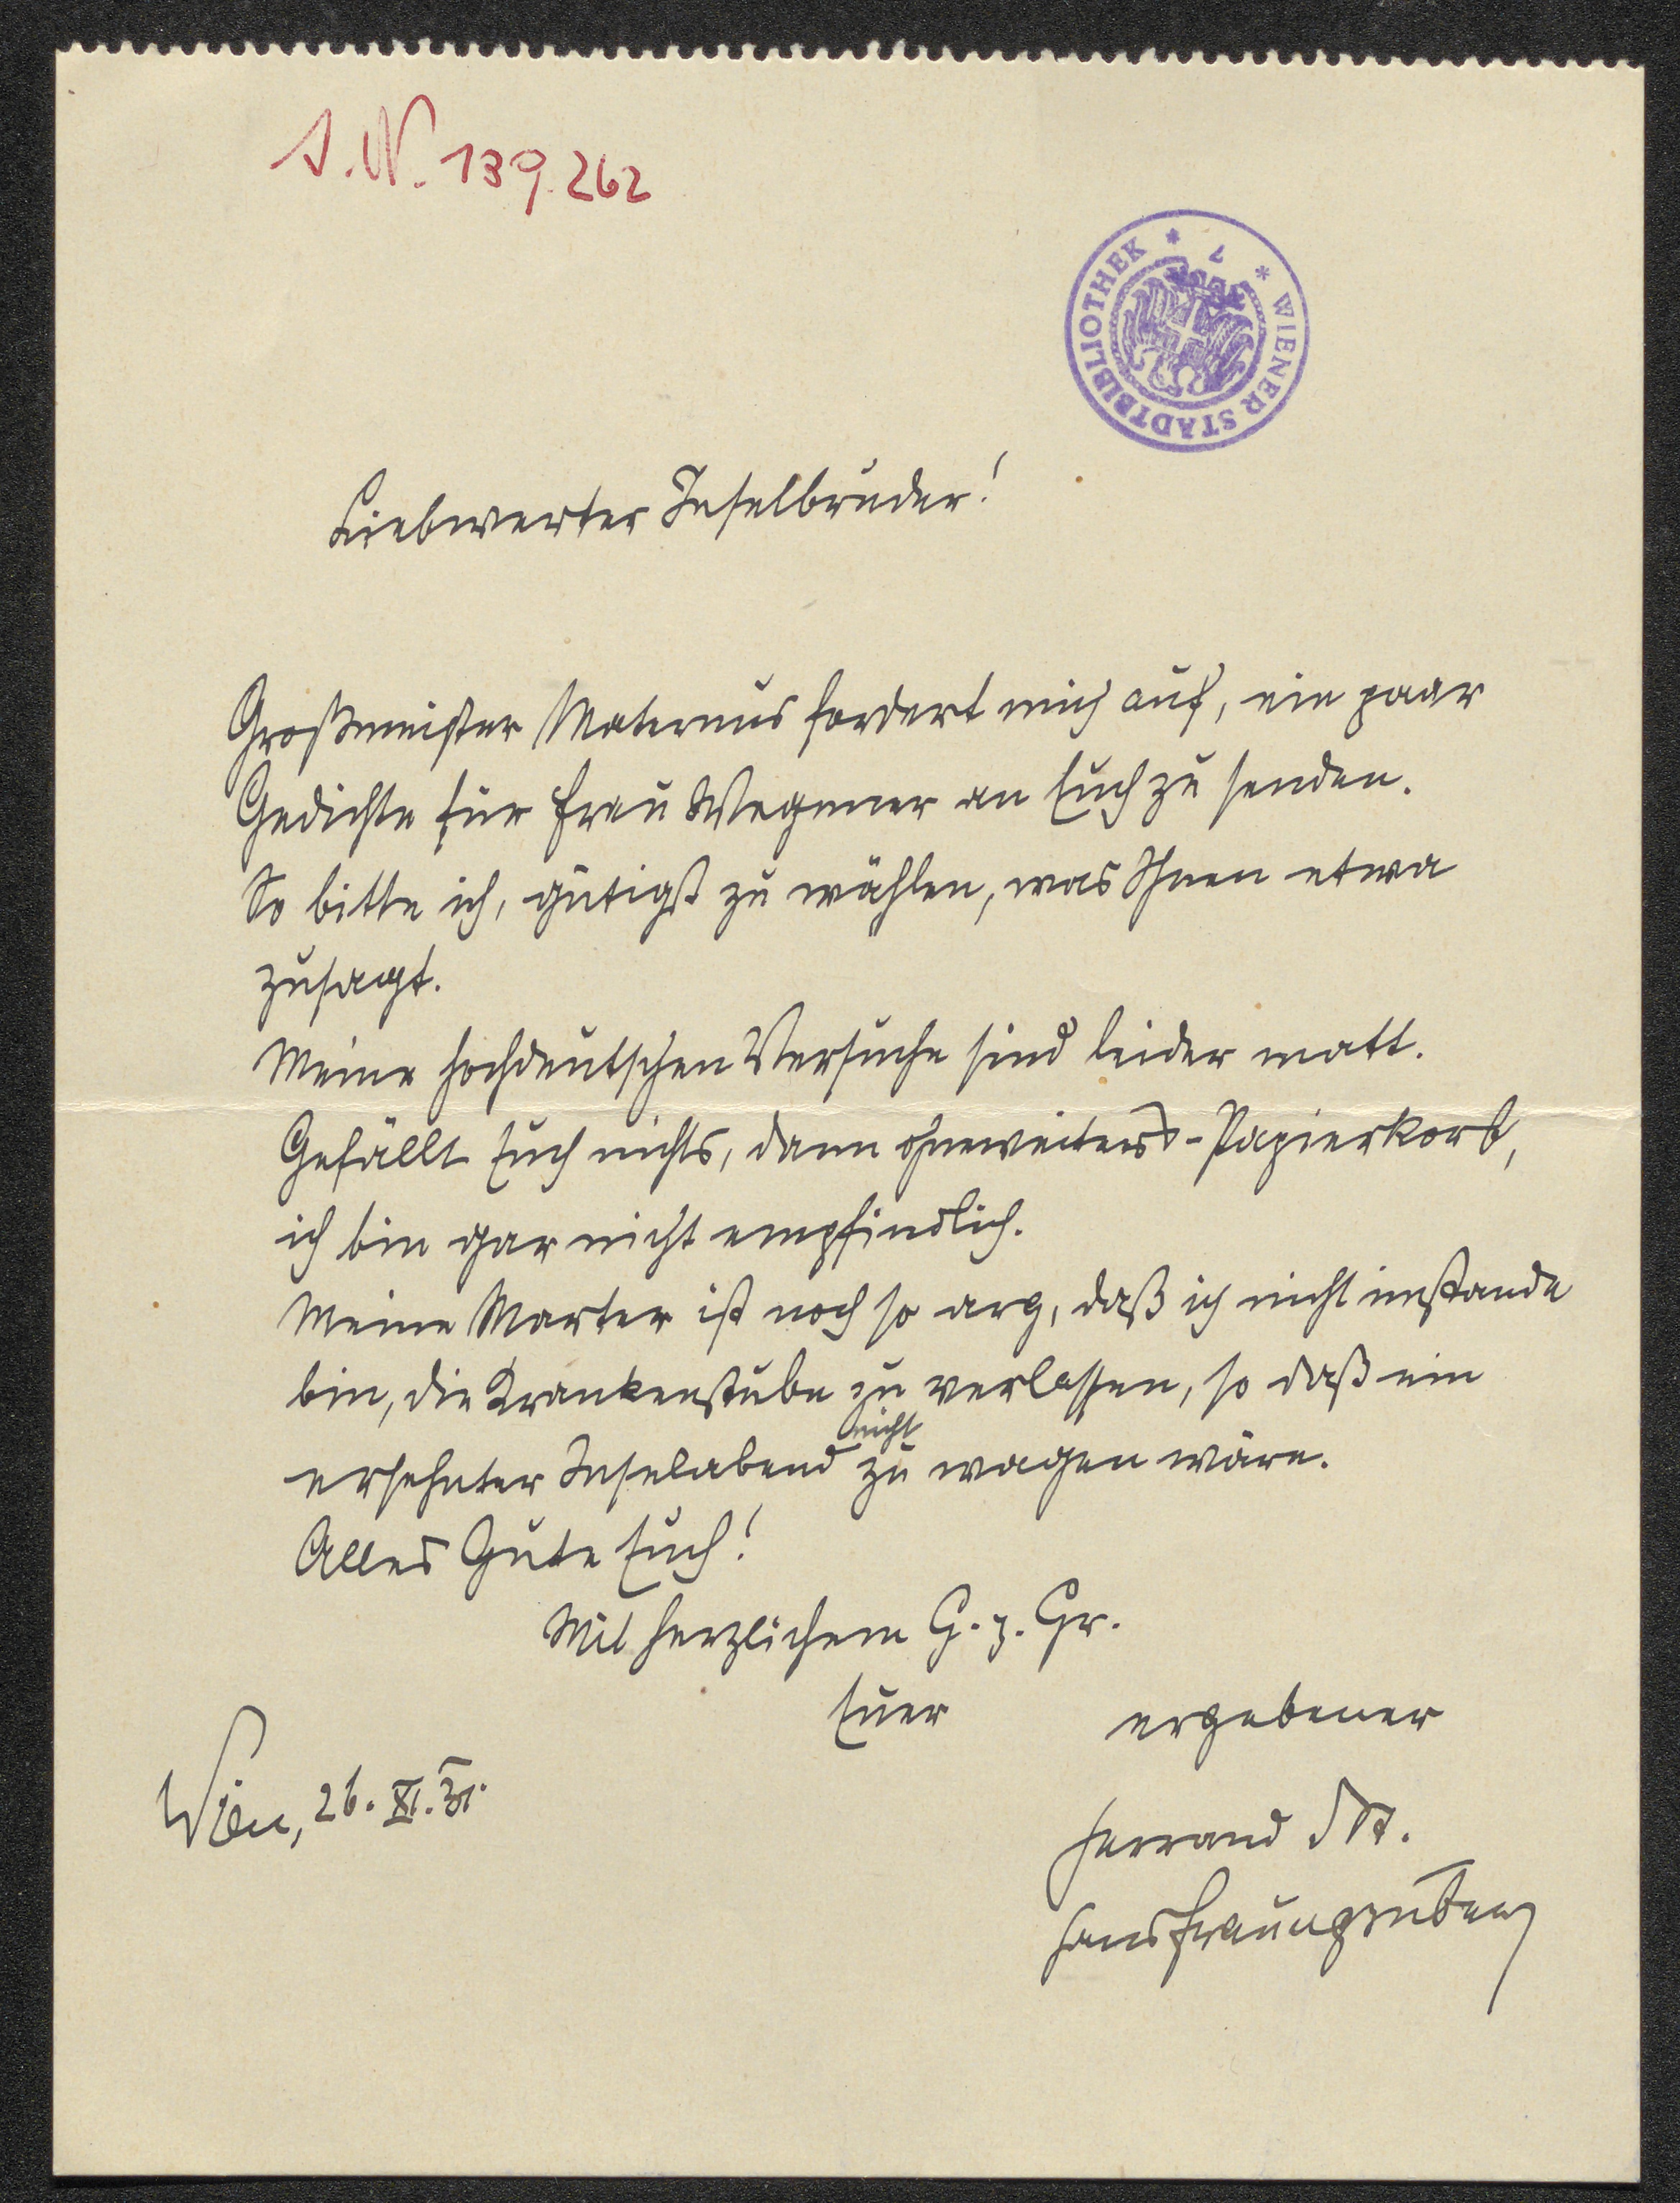 I.N. 139.262
* WIENER STADTBIBLIOTHEK *
Liebwerter Inselbruder!
Großmeister Maternus fordert mich auf, ein paar
Gedichte für Frau Wegener an Euch zu senden.
So bitte ich, gütigst zu wählen, was Ihnen etwa
zusagt.
Meine hochdeutschen Versuche sind leider matt.
Gefällt Euch nichts, dann ohneweiters-Papierkorb,
ich bin gar nicht empfindlich.
Meine Marter ist noch so arg, daß ich nicht imstande
bin, die Krankenstube zu verlassen, so daß ein
nicht
ersehnter Inselabend zu wagen wäre.
Alles Gute Euch!
Mit herzlichem G. z. Gr.
Euer ergebener
Wien, 26. XI. 31.
Herrand
Hans Fraungruber